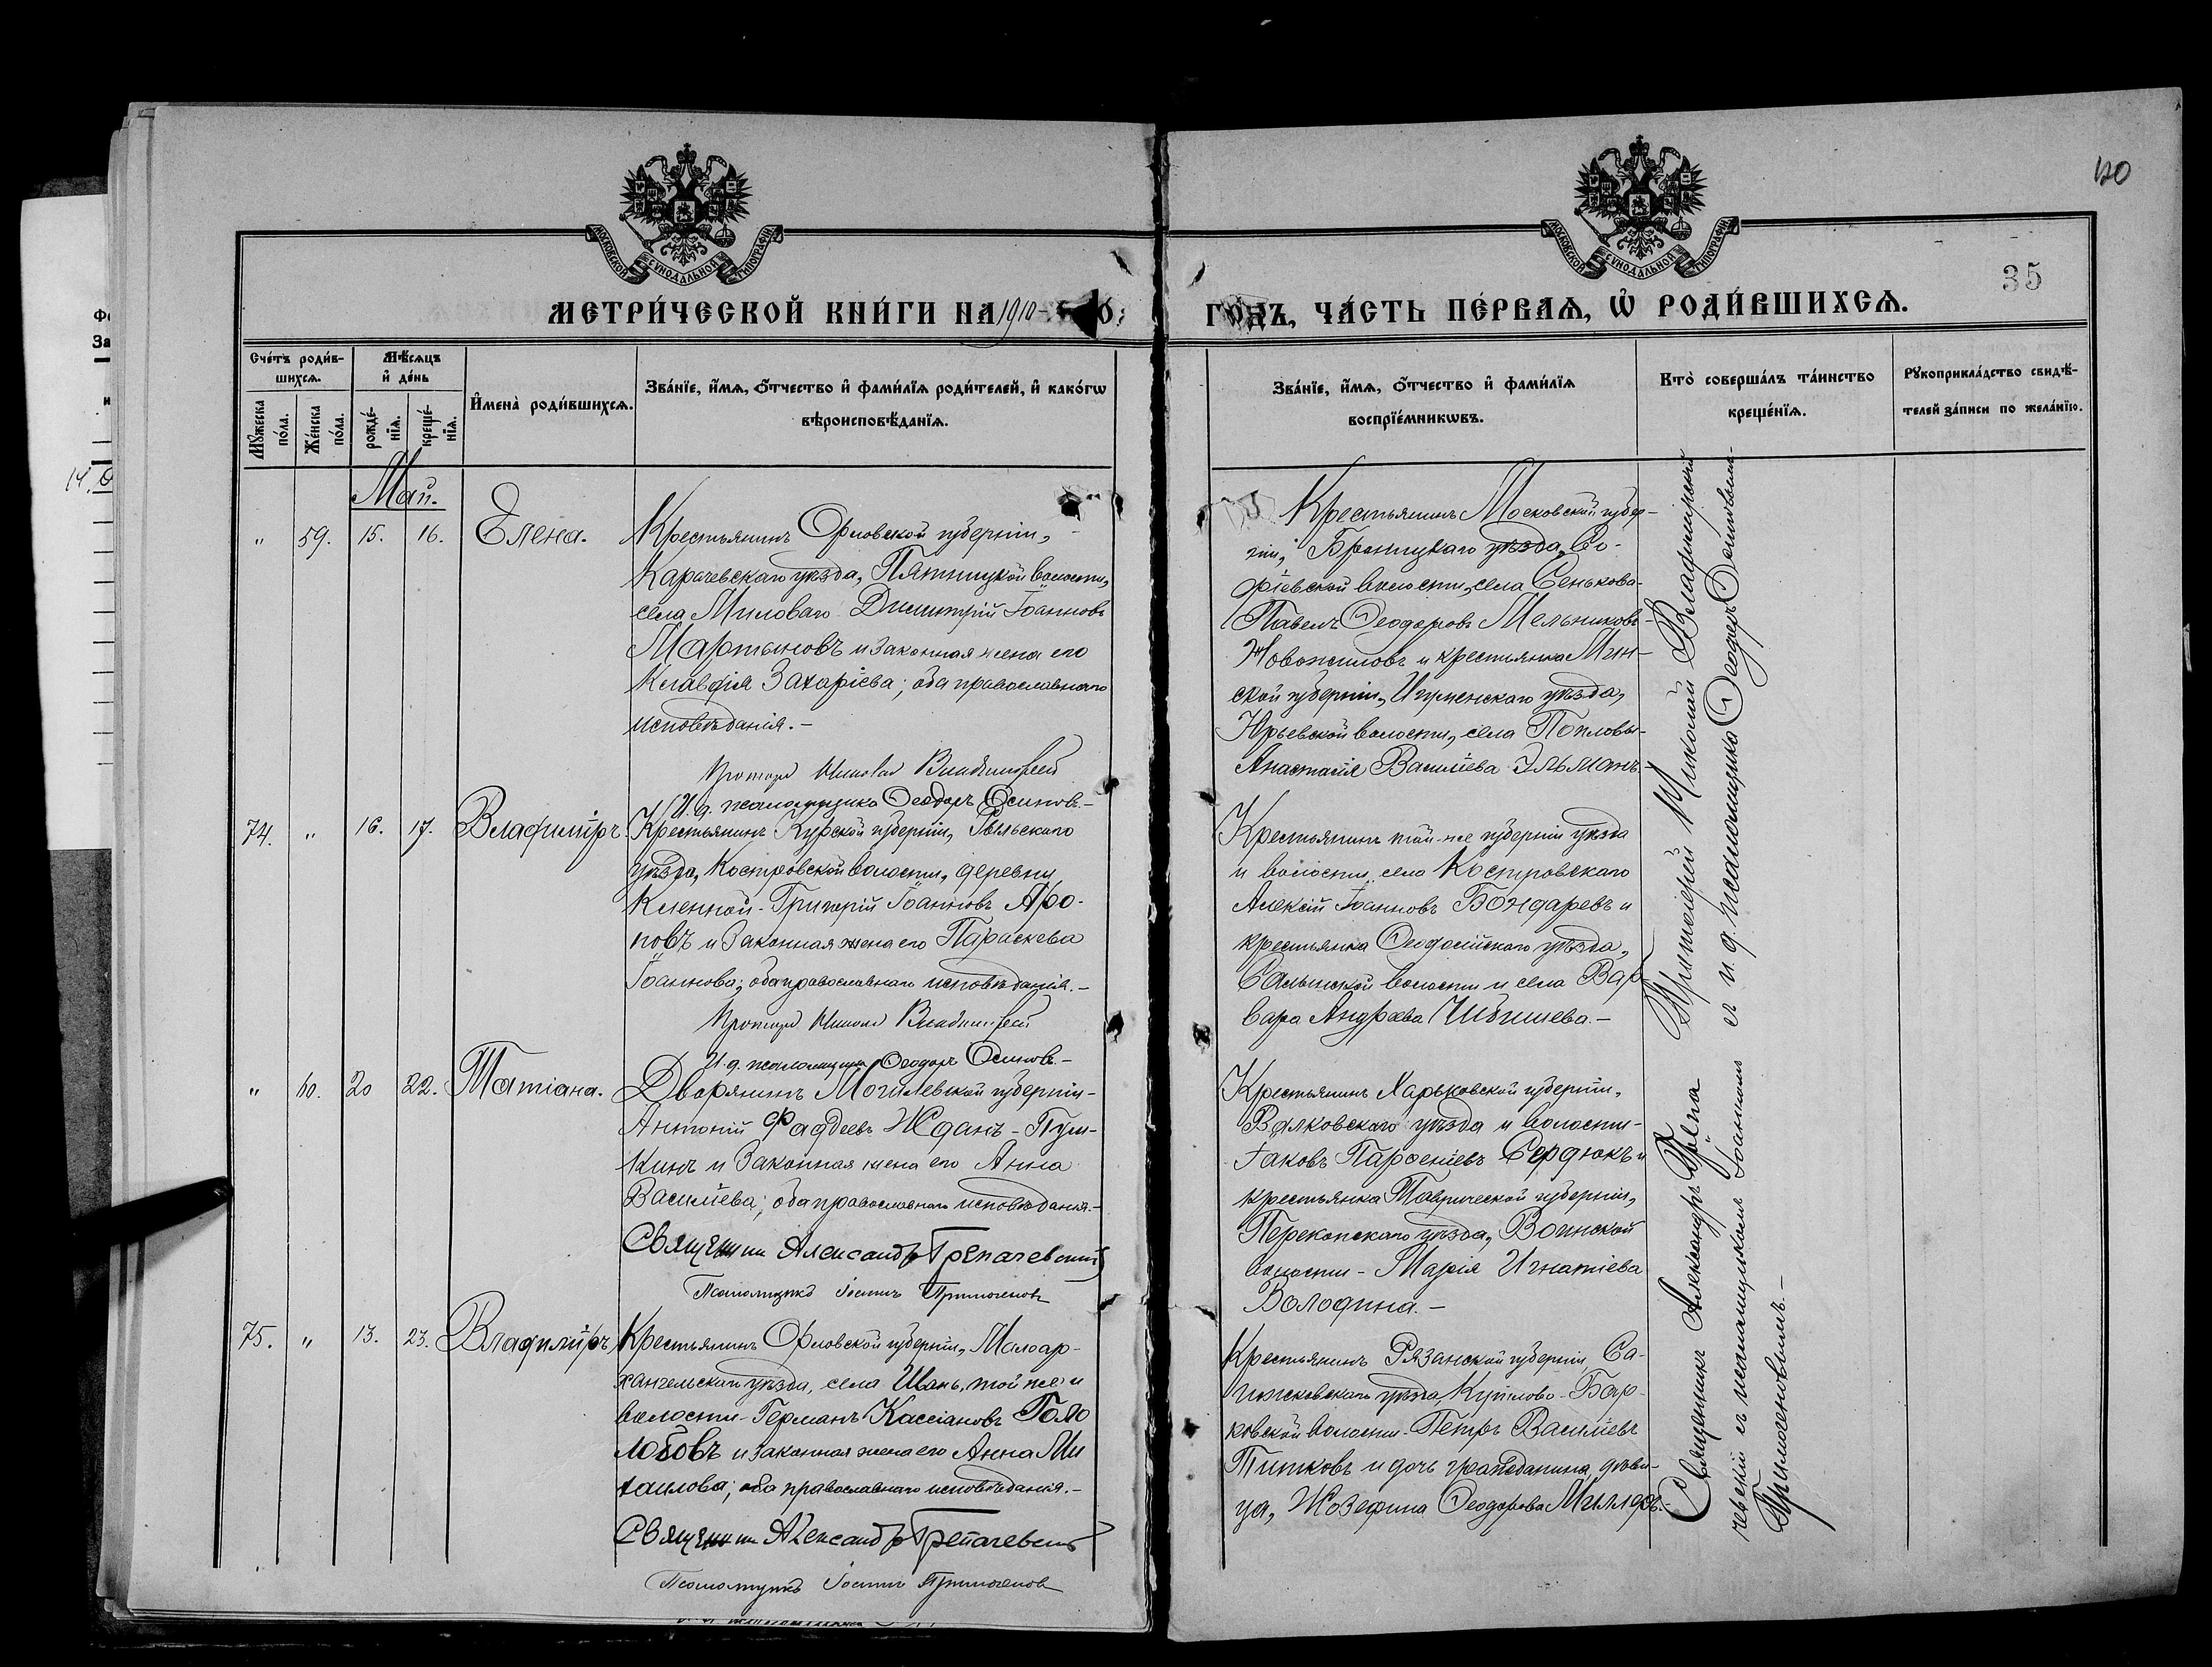 120
35
МОСКОВСКОЙ СѴНОДАЛЬНОЙ ТИПОГРАФІИ
МОСКОВСКОЙ СѴНОДАЛЬНОЙ ТИПОГРАФІИ
МЕТРИ́ЧЕСКОЙ КНИ́ГИ НА 1910-
ГО́ДЪ, ЧА́СТЬ ПЕ́РВАѦ, Ѡ҆ РОДИ́ВШИХСѦ.
Сче́тъ роди́в-
шихсѧ.
Мꙋ́жеска
по́ла.
Же́нска
по́ла.
Мѣ́сѧцъ
и҆ де́нь
рожде́-
нїѧ.
креще́-
нїѧ.
И҆мена̀ роди́вшихсѧ.
Зва́нїе, и҆́мѧ, ѻ҆́тчество и҆ фами́лїѧ роди́телей, и҆ како́гѡ
вѣроисповѣ́данїѧ.
Зва́нїе, и҆́мѧ, ѻ҆́тчество и҆ фами́лїѧ
воспрїе́мникѡвъ.
Кто̀ соверша́лъ та́инство
креще́нїѧ.
Рꙋкоприкла́дство свидѣ́-
телей за́писи по жела́нїю.
Май.
" 59. 15. 16. Елена.
Крестьянинъ Орловской губерніи,
Карачевскаго уѣзда, Пятницкой волости,
села Миловаго Димитрій Іоанновъ
Мартыновъ и законная жена его
Клавдія Захаріева; оба православнаго
исповѣданія.-
Протоіерей Николай Владимірскій
И. д. псаломщика Ѳеодоръ Осиповъ.-
Крестьянинъ Московской губер-
ніи, Бронницкаго уѣзда, Со-
фіевской волости, села Сенькова-
Павелъ Ѳеодоровъ Мельниковъ-
Новожиловъ и крестьянка Мин-
ской губерніи, Игуменскаго уѣзда,
Юрьевской волости, села Попловы-
Анастасія Васильева Эльманъ.
74. " 16. 17. Владиміръ.
Крестьянинъ Курской губерніи, Рыльскаго
уѣзда, Костровской волости, деревни
Кленной - Григорій Іоанновъ Аро-
повъ и законная жена его Параскева
Іоаннова; оба православнаго исповѣданія.-
Протоіерей Николай Владимірскій
И. д. псаломщика Ѳеодоръ Осиповъ.-
Крестьянинъ той-же губерніи уѣзда
и волости, села Костровскаго
Алексій Іоанновъ Бондаревъ и
крестьянка Ѳеодосійскаго уѣзда,
Салынской волости и села Вар-
вара Андреева Чибишева.-
" 60. 20 22. Татіана.
Дворянинъ Могилевской губерніи-
Антоній Фаддеевъ Жданъ-Пуш-
кинъ и законная жена его Анна
Васильева; оба православнаго исповѣданія.-
Священникъ Александръ Трепачевскій
Псаломщикъ Іоаннъ Примогеновъ
Крестьянинъ Харьковской губерніи,
Валковскаго уѣзда и волости-
Іаковъ Парѳеніевъ Сердюкъ и
крестьянка Таврической губерніи,
Перекопскаго уѣзда, Воинской
волости - Марія Игнатіева
Володина.-
75. " 13. 23. Владиміръ
Крестьянинъ Орловской губерніи, Малоар-
хангельскаго уѣзда, села Шань, той же и
волости - Германъ Кассіановъ Голо
лобовъ и законная жена его Анна Ми
хаилова; оба православнаго исповѣданія.-
Священникъ Александръ Трепачевскій
Псаломщикъ Іоаннъ Примогеновъ
Крестьянинъ Рязанской губерніи, Са-
пожковскаго уѣзда, Бор-
ковской волости - Петръ Васильевъ
Титковъ и дочь гражданина, дѣви-
ца, Жозефина Ѳеодорова Миллеръ.-
Протоіерей Николай Владимірскій
съ и. д. псаломщика Ѳеодоръ Осиповымъ-
Священникъ Александръ Трепа
чевскій съ псаломщикомъ Іоанномъ
Примогеновымъ.-